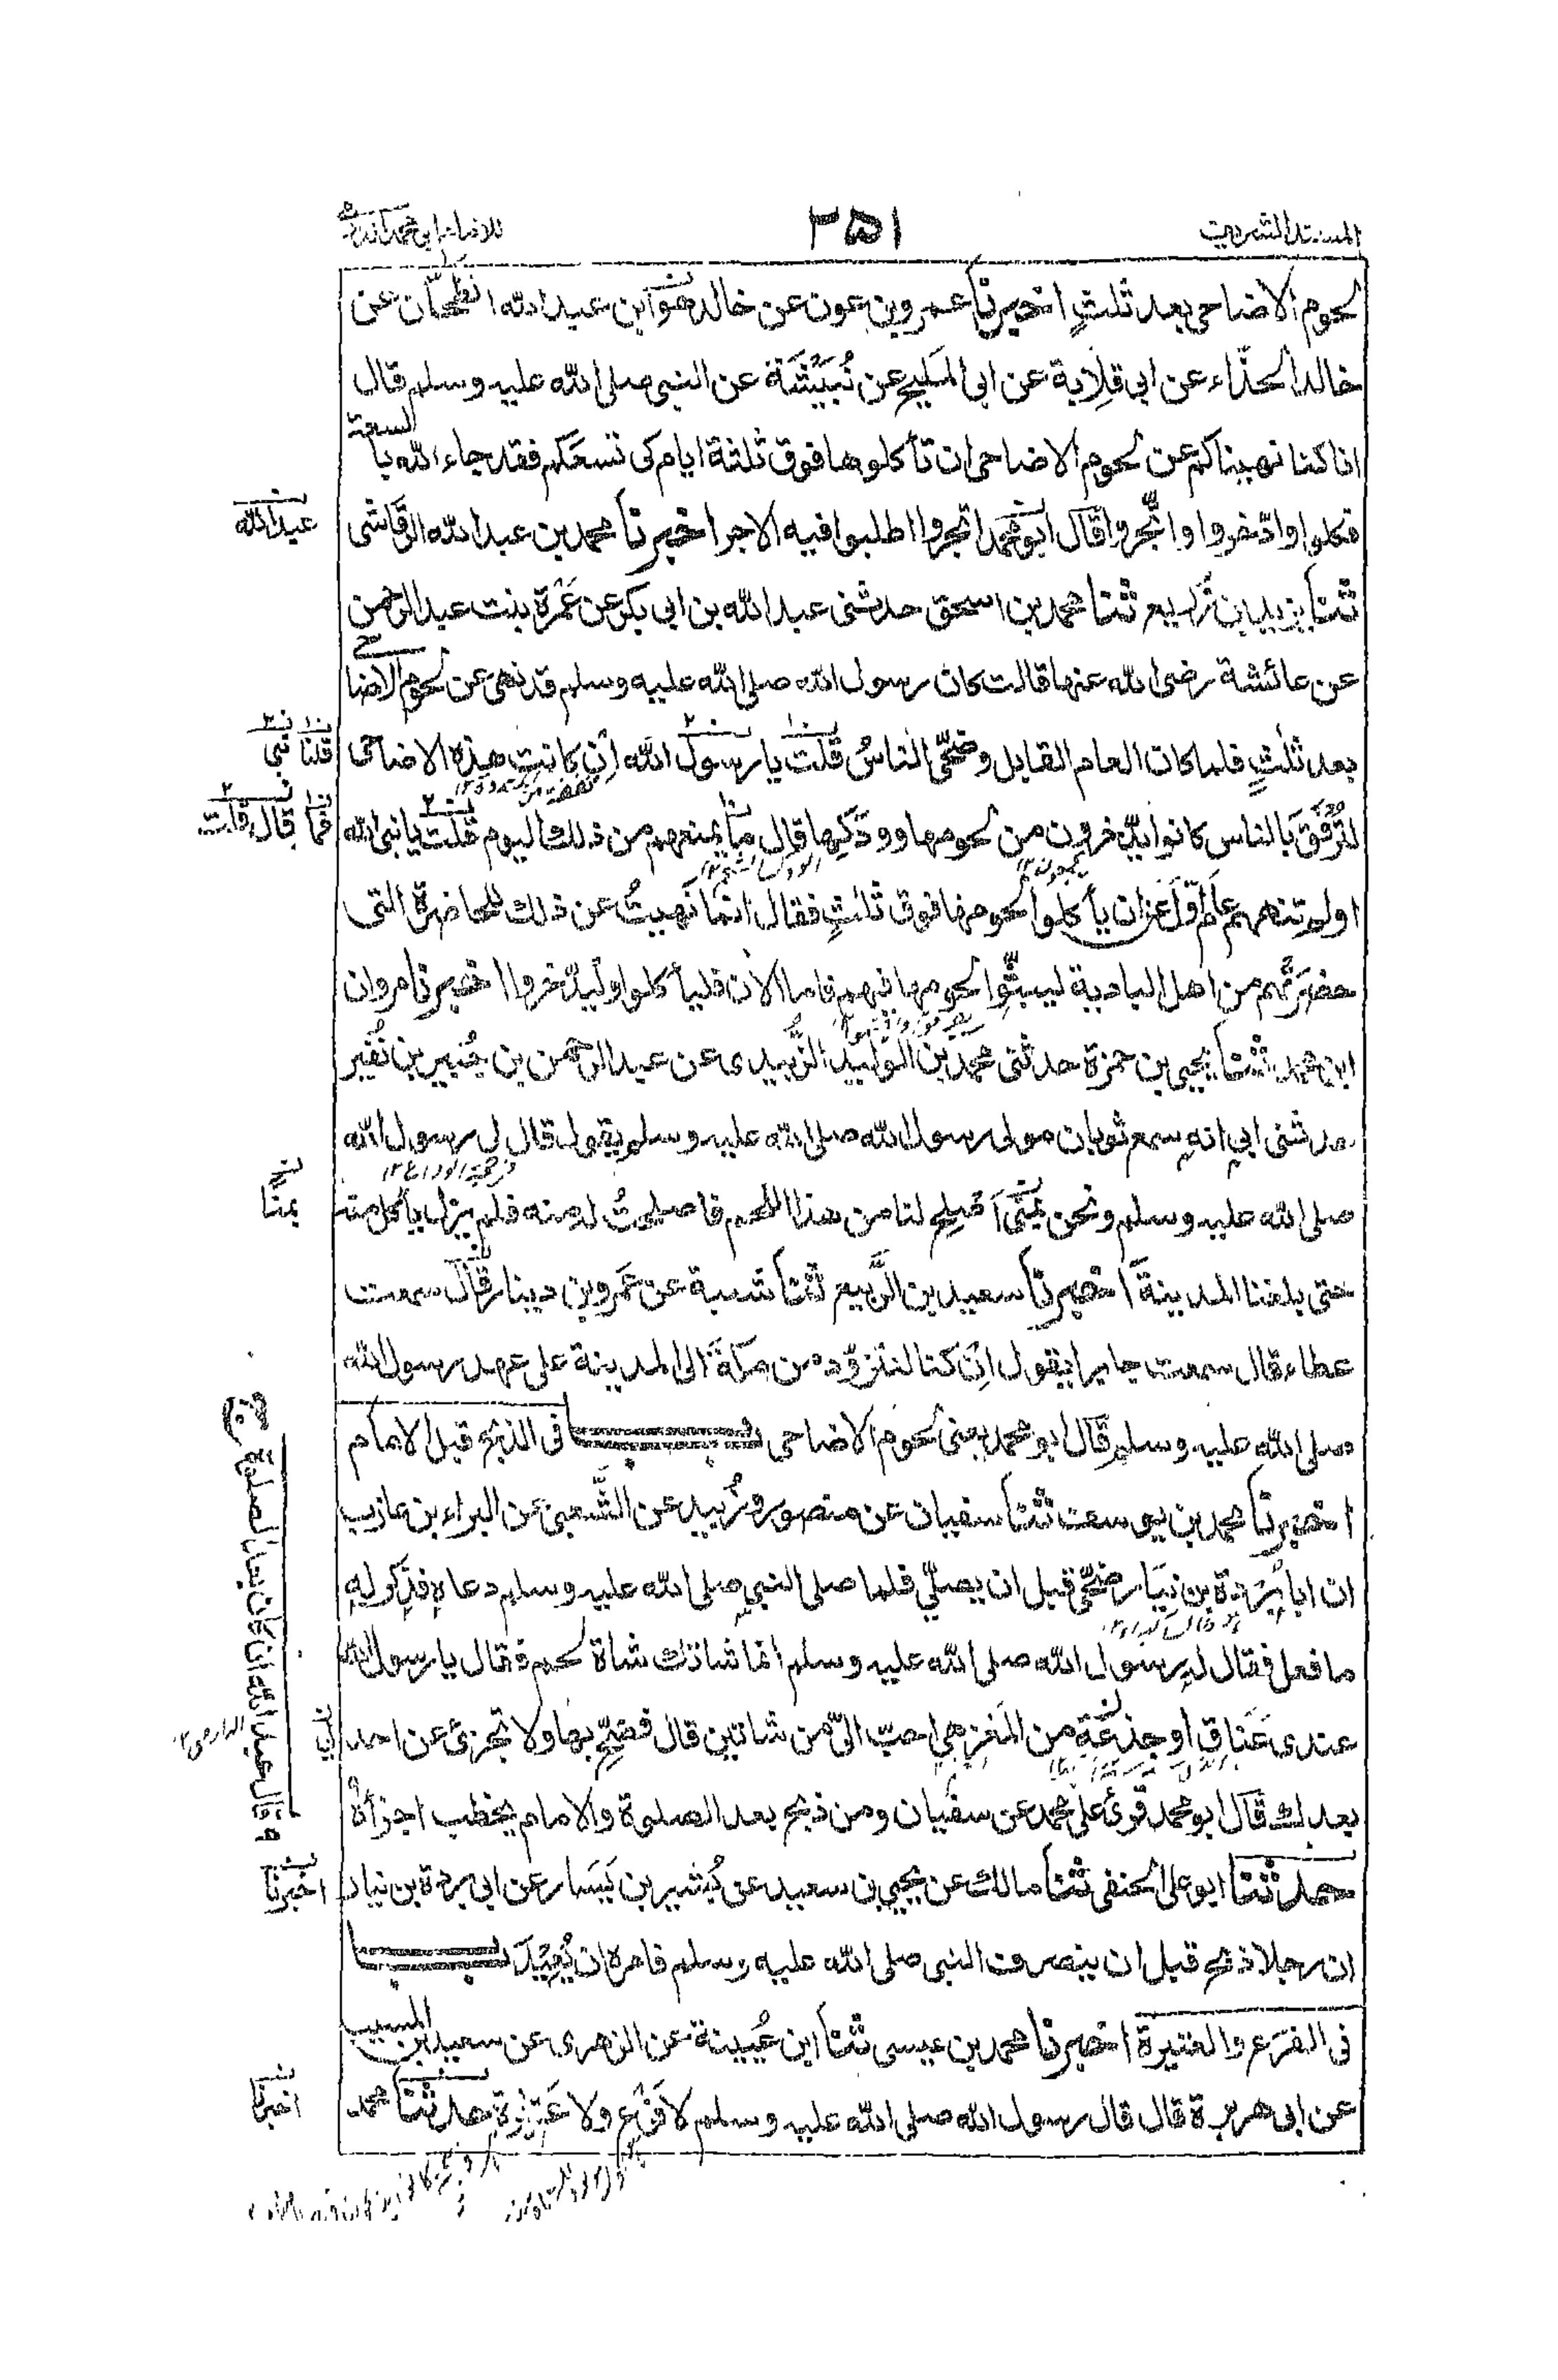 المسند الشريف
٢٥١
للامام ابي محمد الدارمي
لحوم الاضاحي بعد ثلث اخبرنا عمرو بن عون عن خالد هو ابن عبد الله الطحان عن
خالد الحذاء عن ابي قلابة عن ابي المليح عن نُبَيْشَة عن النبي صلى الله عليه وسلم قال
انا كنا نهيناكم عن لحوم الاضاحي ان تأكلوها فوق ثلثة ايام كي تسعكم فقد جاء الله بالسعة
فكلوا وادّخروا واتّجروا قال ابو محمد اتجروا اطلبوا فيه الاجر اخبرنا محمد بن عبد الله الرقاشي
عبيد الله
ثنا يزيد بن زريع ثنا محمد بن اسحق حدثني عبد الله بن ابي بكر عن عَمْرة بنت عبد الرحمن
عن عائشة رضى الله عنها قالت كان رسول الله صلى الله عليه وسلم قد نهى عن لحوم الاضاحي
بعد ثلثٍ فلما كان العام القابل وضحّى الناسُ قلت يا رسول الله اِن كانت هذه الاضاحى
قلنا نبي
لتُرْفقَ بالناس كانوا يدّخرون من لحومها وودكها قال ما يمنعهم من ذلك اليوم قلت يا نبي الله
فما قال قلت
اولم تنههم عام اوّلَ عن ان يأكلوا لحومها فوق ثلثٍ فقال انما نَهيتُ عن ذلك للحاضرة التى
حضرتهم من اهل البادية ليبثّوا لحومها فيهم فاما الآن فليأكلوا وليدّخروا اخبرنا مروان
ابن محمد ثنا يحيى بن حمزة حدثنى محمد بن الوليد الزُّبيدى عن عبد الرحمن بن جُبير بن نُفَير
حدثنى ابي انه سمع ثوبان مولى رسول الله صلى الله عليه وسلم يقول قال لى رسول الله
صلى الله عليه وسلم ونحن بمِنًى اَصْلِح لنا من هذا اللحم فاصلحتُ له منه فلم يزل يأكل منه
بمنًا
حتى بلغنا المدينةَ اخبرنا سعيد بن الرَّبيع ثنا شعبة عن عَمرو بن دينار قال سمعت
عطاء قال سمعت جابرا يقول اِن كنا لنتزوّد من مكةَ الى المدينة على عهد رسول الله
صلى الله عليه وسلم قال ابو محمد يعنى لحوم الاضاحى باب فى الذبح قبل الامام
اخبرنا محمد بن يوسف ثنا سفيان عن منصور وزُبيد عن الشَّعبى عن البراء بن عازب
ان ابا بُرْدة بن نِيَار ضحّى قبل ان يصلّى فلما صلى النبى صلى الله عليه وسلم دعاه فذكر له
ما فعل فقال له رسول الله صلى الله عليه وسلم انما شاتك شاة لحم فقال يا رسول الله
عندى عَنَاق او جَذعَة من المَعْزِ هي احبّ الىّ من شاتين قال فضحِّ بها ولا تجزئ عن احد
بعدك قال ابو محمد قرئ على محمد عن سفيان ومن ذبح بعد الصلوة والامام يخطب اجزأه
وقال عبد الله ان كان بعد الصلوة
حدثنا ابو على الحنفى ثنا مالك عن يحيى بن سعيد عن بُشير بن يَسَار عن ابى بردة بن نيار
اخبرنا
ان رجلا ذبح قبل ان ينصرف النبى صلى الله عليه وسلم فامره ان يُعِيْدَ باب
فى الفَرَع والعتيرة اخبرنا محمد بن عيسى ثنا ابن عُيينة عن الزهرى عن سعيد بن المسيب
عن ابى هريرة قال قال رسول الله صلى الله عليه وسلم لا فَرَع ولا عَتيْرَة حدثنا محمد
اخبرنا